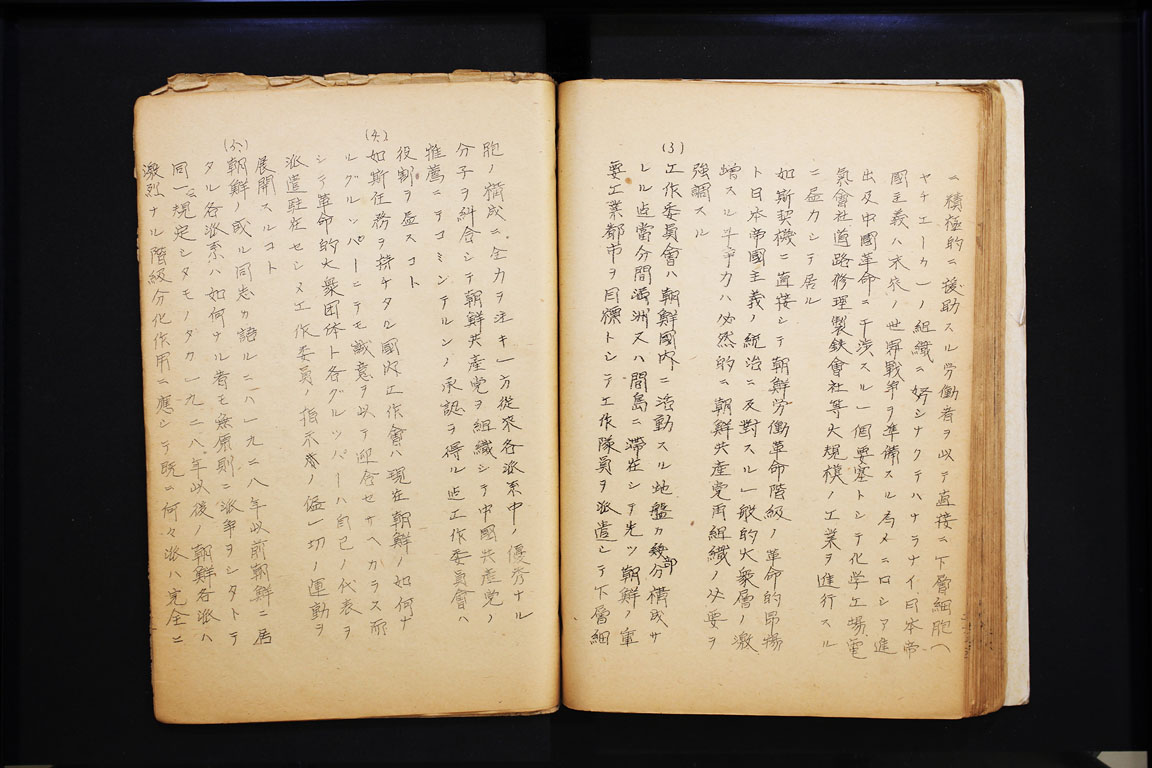 ニ積極的ニ援助スル労働者ヲ以テ直接ニ下層細胞(
ヤチエークー)ノ組織ニ努シナクテハナラナイ日本帝
國主義ハ末ノ世界戦争ヲ準備スル為メニロシア進
出及中國革命ニ干渉スル一個要塞トシテ化学工場電
氣會社道路修理製鉄會社等大規模ノ工業ヲ進行スル
ニ尽力シテ居ル
如斯契機ニ直接シテ朝鮮労働革命階級ノ革命的昂揚
ト日本帝國主義ノ統治ニ反対スル一般的大衆層ノ激
増スル斗争力ハ必然的ニ朝鮮共産党再組織ノ必要ヲ
強調スル
(3)
工作委員會ハ朝鮮國内ニ活動スル地盤カ幾部分構成サ
レル迠當分間満洲又ハ間島ニ滞在シテ先ツ朝鮮ノ重
要工業都市ヲ目標トシテ工作隊員ヲ派遣シテ下層細
胞ノ構成ニ全力ヲ注キ一方従来各派系中ノ優秀ナル
分子ヲ糾合シテ朝鮮共産党ヲ組織シテ中國共産党ノ
推薦ニテコミンテルンノ承認ヲ得ル迠工作委員會ハ
役割ヲ尽スコト
(4)
如斯任務ヲ持チタル國内工作會ハ現在朝鮮ノ如何ナ
ルグルッパーニテモ誠意ヲ以テ迎合セサヘカラス而
シテ革命的大衆団体ト各グルッパーハ自己ノ代表ヲ
派遣駐在セシメ工作委員ノ指示ノ一切ノ運動ヲ
展開スルコト
朝鮮ノ或ル同志カ語ルニハ一九二八年以前朝鮮ニ居
タル各派系ハ如何ナル者モ無原則ニ派争ヲシタトテ
同一規定シタモノタカ一九二八年以後ノ朝鮮各派ハ
激烈ナル階級分化作用ニ應シテ既ニ何々派ハ完全ニ